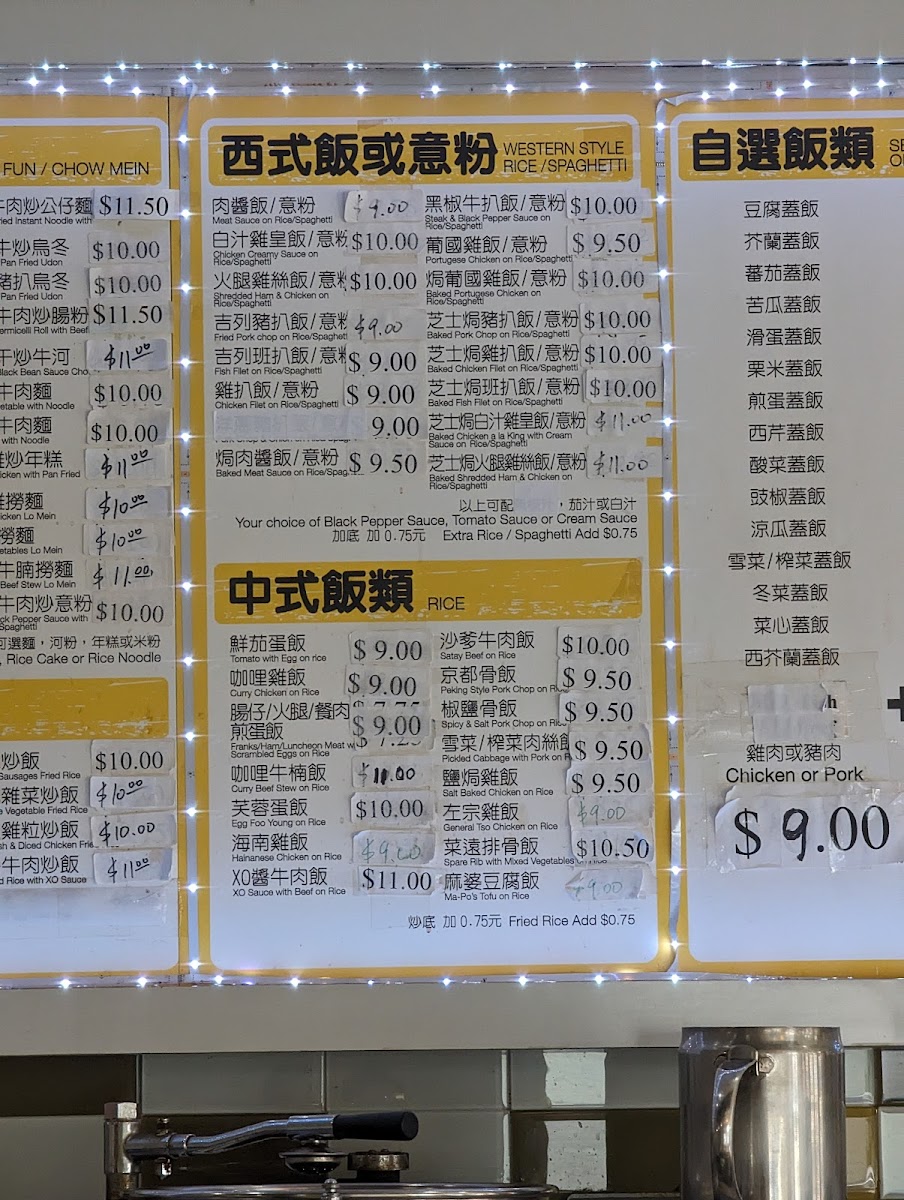 FUN / CHOW MEIN
牛肉炒公仔麵 $11.50
ried Instant Noodle with
牛炒烏冬 $10.00
Pan Fried Udon
豬扒烏冬 $10.00
Pan Fried Udon
牛肉炒腸粉 $11.50
ermicelli Roll with Beef
干炒牛河 $11.00
Black Bean Sauce Cho
牛肉麵 $10.00
etable with Noodle
牛肉麵 $10.00
with Noodle
炒年糕 $11.00
icken with Pan Fried
撈麵 $10.00
icken Lo Mein
撈麵 $10.00
etables Lo Mein
牛腩撈麵 $11.00
Beef Stew Lo Mein
牛肉炒意粉 $10.00
ck Pepper Sauce with
Spaghetti
可選麵，河粉，年糕或米粉
, Rice Cake or Rice Noodle
炒飯 $10.00
Sausages Fried Rice
雜菜炒飯 $10.00
e Vegetable Fried Rice
雞粒炒飯 $10.00
sh & Diced Chicken Frie
牛肉炒飯 $11.00
d Rice with XO Sauce
西式飯或意粉 WESTERN STYLE
RICE / SPAGHETTI
肉醬飯/意粉 $9.00
Meat Sauce on Rice/Spaghetti
白汁雞皇飯/意粉 $10.00
Chicken Creamy Sauce on
Rice/Spaghetti
火腿雞絲飯/意粉 $10.00
Shredded Ham & Chicken on
Rice/Spaghetti
吉列豬扒飯/意粉 $9.00
Fried Pork chop on Rice/Spaghetti
吉列班扒飯/意粉 $9.00
Fish Filet on Rice/Spaghetti
雞扒飯/意粉 $9.00
Chicken Filet on Rice/Spaghetti
9.00
焗肉醬飯/意粉 $9.50
Baked Meat Sauce on Rice/Spag
黑椒牛扒飯/意粉 $10.00
Steak & Black Pepper Sauce on
Rice/Spaghetti
葡國雞飯/意粉 $9.50
Portugese Chicken on Rice/Spaghetti
焗葡國雞飯/意粉 $10.00
Baked Portugese Chicken on
Rice/Spaghetti
芝士焗豬扒飯/意粉 $10.00
Baked Pork Chop on Rice/Spaghetti
芝士焗雞扒飯/意粉 $10.00
Baked Chicken Filet on Rice/Spaghetti
芝士焗班扒飯/意粉 $10.00
Baked Fish Filet on Rice/Spaghetti
芝士焗白汁雞皇飯/意粉 $11.00
Baked Chicken a la King with Cream
Sauce on Rice/Spaghetti
芝士焗火腿雞絲飯/意粉 $11.00
Baked Shredded Ham & Chicken on
Rice/Spaghetti
以上可配 ，茄汁或白汁
Your choice of Black Pepper Sauce, Tomato Sauce or Cream Sauce
加底 加 0.75元 Extra Rice / Spaghetti Add $0.75
中式飯類 RICE
鮮茄蛋飯 $9.00
Tomato with Egg on rice
咖哩雞飯 $9.00
Curry Chicken on Rice
腸仔/火腿/餐肉
煎蛋飯 $9.00
Franks/Ham/Luncheon Meat w
Scrambled Eggs on Rice
咖哩牛楠飯 $11.00
Curry Beef Stew on Rice
芙蓉蛋飯 $10.00
Egg Foo Young on Rice
海南雞飯 $9.00
Hainanese Chicken on Rice
XO醬牛肉飯 $11.00
XO Sauce with Beef on Rice
沙爹牛肉飯 $10.00
Satay Beef on Rice
京都骨飯 $9.50
Peking Style Pork Chop on Ri
椒鹽骨飯 $9.50
Spicy & Salt Pork Chop on Ric
雪菜/榨菜肉絲飯 $9.50
Pickled Cabbage with Pork on
鹽焗雞飯 $9.50
Salt Baked Chicken on Rice
左宗雞飯 $9.00
General Tso Chicken on Rice
菜遠排骨飯 $10.50
Spare Rib with Mixed Vegetables on Rice
麻婆豆腐飯 $9.00
Ma-Po's Tofu on Rice
炒底 加 0.75元 Fried Rice Add $0.75
自選飯類
豆腐蓋飯
芥蘭蓋飯
蕃茄蓋飯
苦瓜蓋飯
滑蛋蓋飯
栗米蓋飯
煎蛋蓋飯
西芹蓋飯
酸菜蓋飯
豉椒蓋飯
涼瓜蓋飯
雪菜/榨菜蓋飯
冬菜蓋飯
菜心蓋飯
西芥蘭蓋飯
+
雞肉或豬肉
Chicken or Pork
$9.00